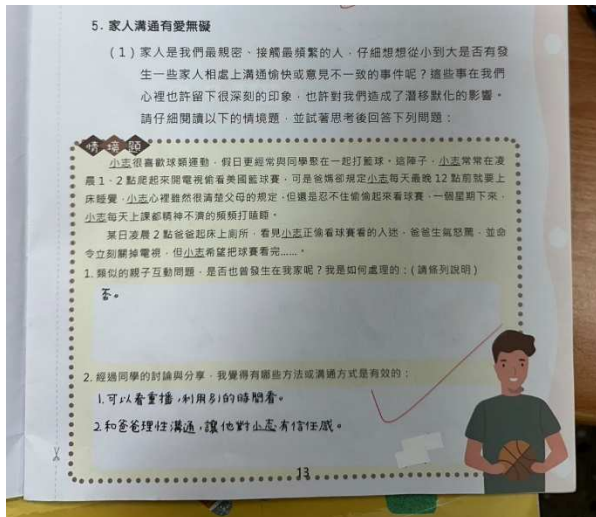 5. 家人溝通有愛無礙
(1)家人是我們最親密、接觸最頻繁的人,仔細想想從小到大是否有發
生一些家人相處上溝通愉快或意見不一致的事件呢?這些事在我們
心裡也許留下很深刻的印象,也許對我們造成了潛移默化的影響。
請仔細閱讀以下的情境題,並試著思考後回答下列問題:
情境題
小志很喜歡球類運動,假日更經常與同學聚在一起打籃球。這陣子,小志常常在凌
晨1、2點爬起來開電視偷看美國籃球賽,可是爸媽卻規定小志每天最晚12點前就要上
床睡覺,小志心裡雖然很清楚父母的規定,但還是忍不住偷偷起來看球賽,一個星期下來,
小志每天上課都精神不濟的頻頻打瞌睡。
某日凌晨2點爸爸起床上廁所,看見小志正偷看球賽看的入迷,爸爸生氣怒罵,並命
令立刻關掉電視,但小志希望把球賽看完......。
1. 類似的親子互動問題,是否也曾發生在我家呢?我是如何處理的:(請條列說明)
否。
2. 經過同學的討論與分享,我覺得有哪些方法或溝通方式是有效的:
1.可以看重播,利用別的時間看。
2.和爸爸理性溝通,讓他對小志有信任感。
13